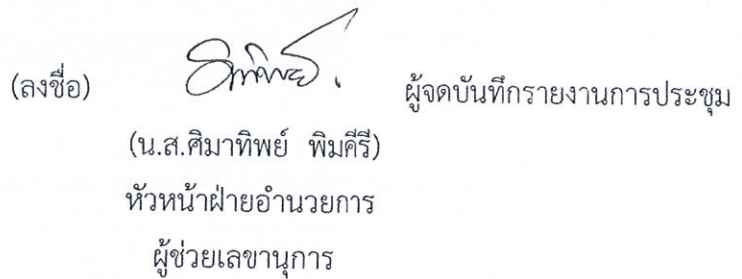 (ลงชื่อ) ผู้จดบันทึกรายงานการประชุม
(น.ส.ศิมาทิพย์ พิมคีรี)
หัวหน้าฝ่ายอำนวยการ
ผู้ช่วยเลขานุการ